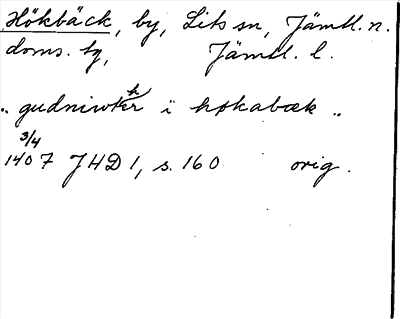 Hökbäck, by, Lits sn, Jämtl. n.
doms. sg, Jämtl. l.
„ gudniwter i høkabæk „
3/4
1407 JHD 1, s. 160 orig.